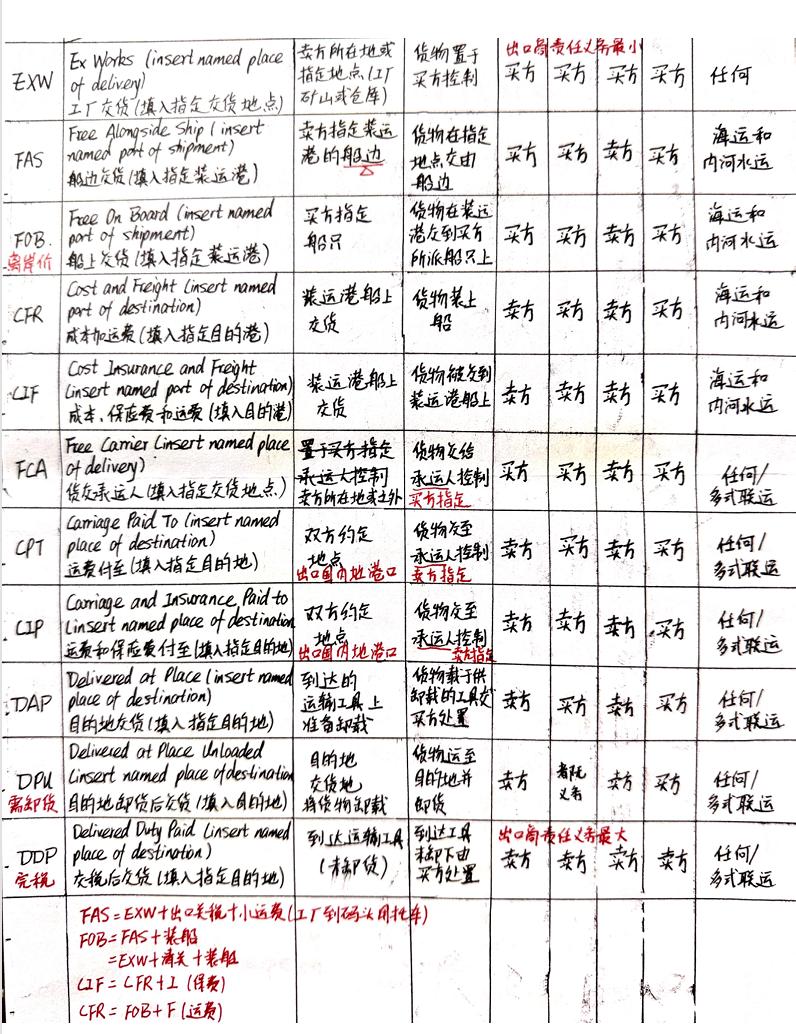 出口商责任义务最小
EXW
Ex Works (insert named place
of delivery)
工厂交货(填入指定交货地点)
卖方所在地或
指定地点(工厂
矿山或仓库)
货物置于
买方控制
买方 买方 买方 买方
任何
FAS
Free Alongside Ship (insert
named port of shipment)
船边交货(填入指定装运港)
卖方指定装运
港的船边
货物在指定
地点交由
船边
买方 买方 卖方 买方
海运和
内河水运
FOB
离岸价
Free On Board (insert named
port of shipment)
船上交货(填入指定装运港)
买方指定
船只
货物在装运
港交到买方
所派船只上
买方 买方 卖方 买方
海运和
内河水运
CFR
Cost and Freight (insert named
port of destination)
成本加运费(填入指定目的港)
装运港船上
交货
货物装上
船
卖方 买方 卖方 买方
海运和
内河水运
CIF
Cost Insurance and Freight
(insert named port of destination)
成本、保险费和运费(填入目的港)
装运港船上
交货
货物被交到
装运港船上
卖方 卖方 卖方 买方
海运和
内河水运
FCA
Free Carrier (insert named place
of delivery)
货交承运人(填入指定交货地点)
置于买方指定
承运人控制
卖方所在地或之外
货物交给
承运人控制
买方指定
买方 买方 卖方 买方
任何/
多式联运
CPT
Carriage Paid To (insert named
place of destination)
运费付至(填入指定目的地)
双方约定
地点
出口国内地港口
货物交至
承运人控制
卖方指定
卖方 买方 卖方 买方
任何/
多式联运
CIP
Carriage and Insurance Paid to
(insert named place of destination
运费和保险费付至(填入指定目的地)
双方约定
地点
出口国内地港口
货物交至
承运人控制
卖方指定
卖方 卖方 卖方 买方
任何/
多式联运
DAP
Delivered at Place (insert named
place of destination)
目的地交货(填入指定目的地)
到达的
运输工具上
准备卸载
货物载于供
卸载的工具交
买方处置
卖方 买方 卖方 买方
任何/
多式联运
DPU
需卸货
Delivered at Place Unloaded
(insert named place of destination
目的地卸货后交货(填入目的地)
目的地
交货地
将货物卸载
货物运至
目的地并
卸货
卖方
义务
卖方 买方
任何/
多式联运
出口商责任义务最大
DDP
完税
Delivered Duty Paid (insert named
place of destination)
交税后交货(填入指定目的地)
到达运输工具
(未卸货)
到达工具
未卸下由
买方处置
卖方 卖方 卖方 卖方
任何/
多式联运
FAS=EXW+出口关税+小运费(工厂到码头用拖车)
FOB=FAS+装船
=EXW+清关+装船
CIF=CFR+I(保费)
CFR=FOB+F(运费)